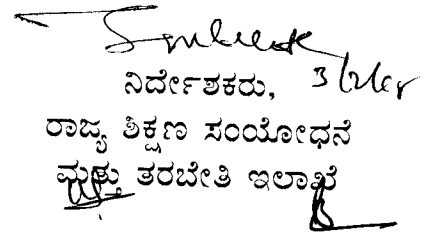 ನಿರ್ದೇಶಕರು,
ರಾಜ್ಯ ಶಿಕ್ಷಣ ಸಂಯೋಧನೆ
ಮತ್ತು ತರಬೇತಿ ಇಲಾಖೆ